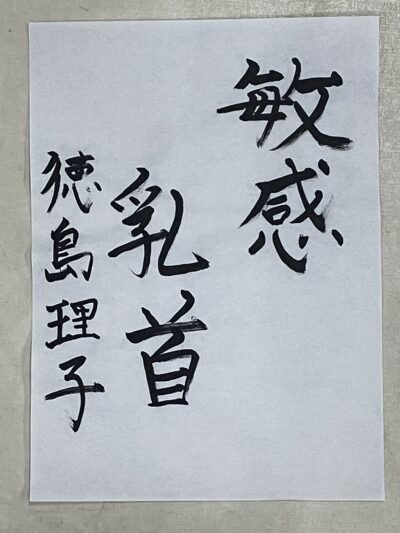 敏感
乳首
徳島理子